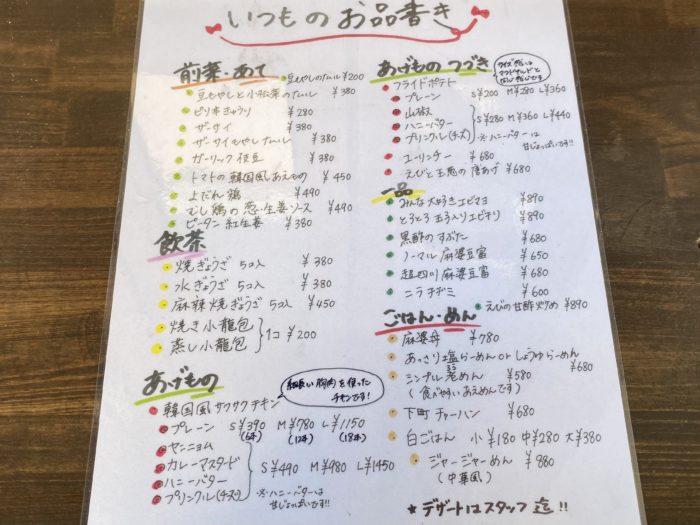 いつものお品書き
前菜・あて
豆もやしのナムル ¥200
豆もやしと小松菜のナムル ¥380
ピリ辛きゅうり ¥280
ザーサイ ¥380
ザーサイもやしナムル ¥380
ガーリック枝豆 ¥380
トマトの韓国風あえもの ¥450
よだれ鶏 ¥490
むし鶏の葱・生姜ソース ¥490
ピータン 紅生姜 ¥380
飲茶
焼ぎょうざ 5コ入 ¥380
水ぎょうざ 5コ入 ¥380
麻辣焼ぎょうざ 5コ入 ¥450
焼き小籠包
蒸し小籠包
1コ ¥200
あげもの
細長い胸肉を使った
チキンです!
韓国風サクサクチキン
プレーン S¥390 M¥780 L¥1150
(6本) (12本) (18本)
ヤンニョム
カレーマスタード
ハニーバター
プリンクル(チーズ)
S¥490 M¥980 L¥1450
※ハニーバターは
甘じょっぱいです!!
あげもの つづき
サイズ感は
マクドナルドと
同じ位です
フライドポテト
プレーン S¥200 M¥280 L¥360
山椒
ハニーバター
プリンクル(チーズ)
S¥280 M¥360 L¥440
※ハニーバターは
甘じょっぱいです!!
ユーリンチー ¥680
えびと玉葱の唐あげ ¥680
一品
みんな大好きエビマヨ ¥890
とろとろ玉子入りエビチリ ¥890
黒酢のすぶた ¥680
ノーマル麻婆豆富 ¥650
超四川麻婆豆富 ¥680
ニラチヂミ ¥600
えびの甘酢炒め ¥890
ごはん・めん
麻婆丼 ¥780
あっさり塩らーめんorしょうゆらーめん
¥680
シンプル老めん ¥580
(食べやすいあえめんです)
下町チャーハン ¥680
白ごはん 小¥180 中¥280 大¥380
ジャージャーめん ¥880
(中華風)
★デザートはスタッフ迄!!